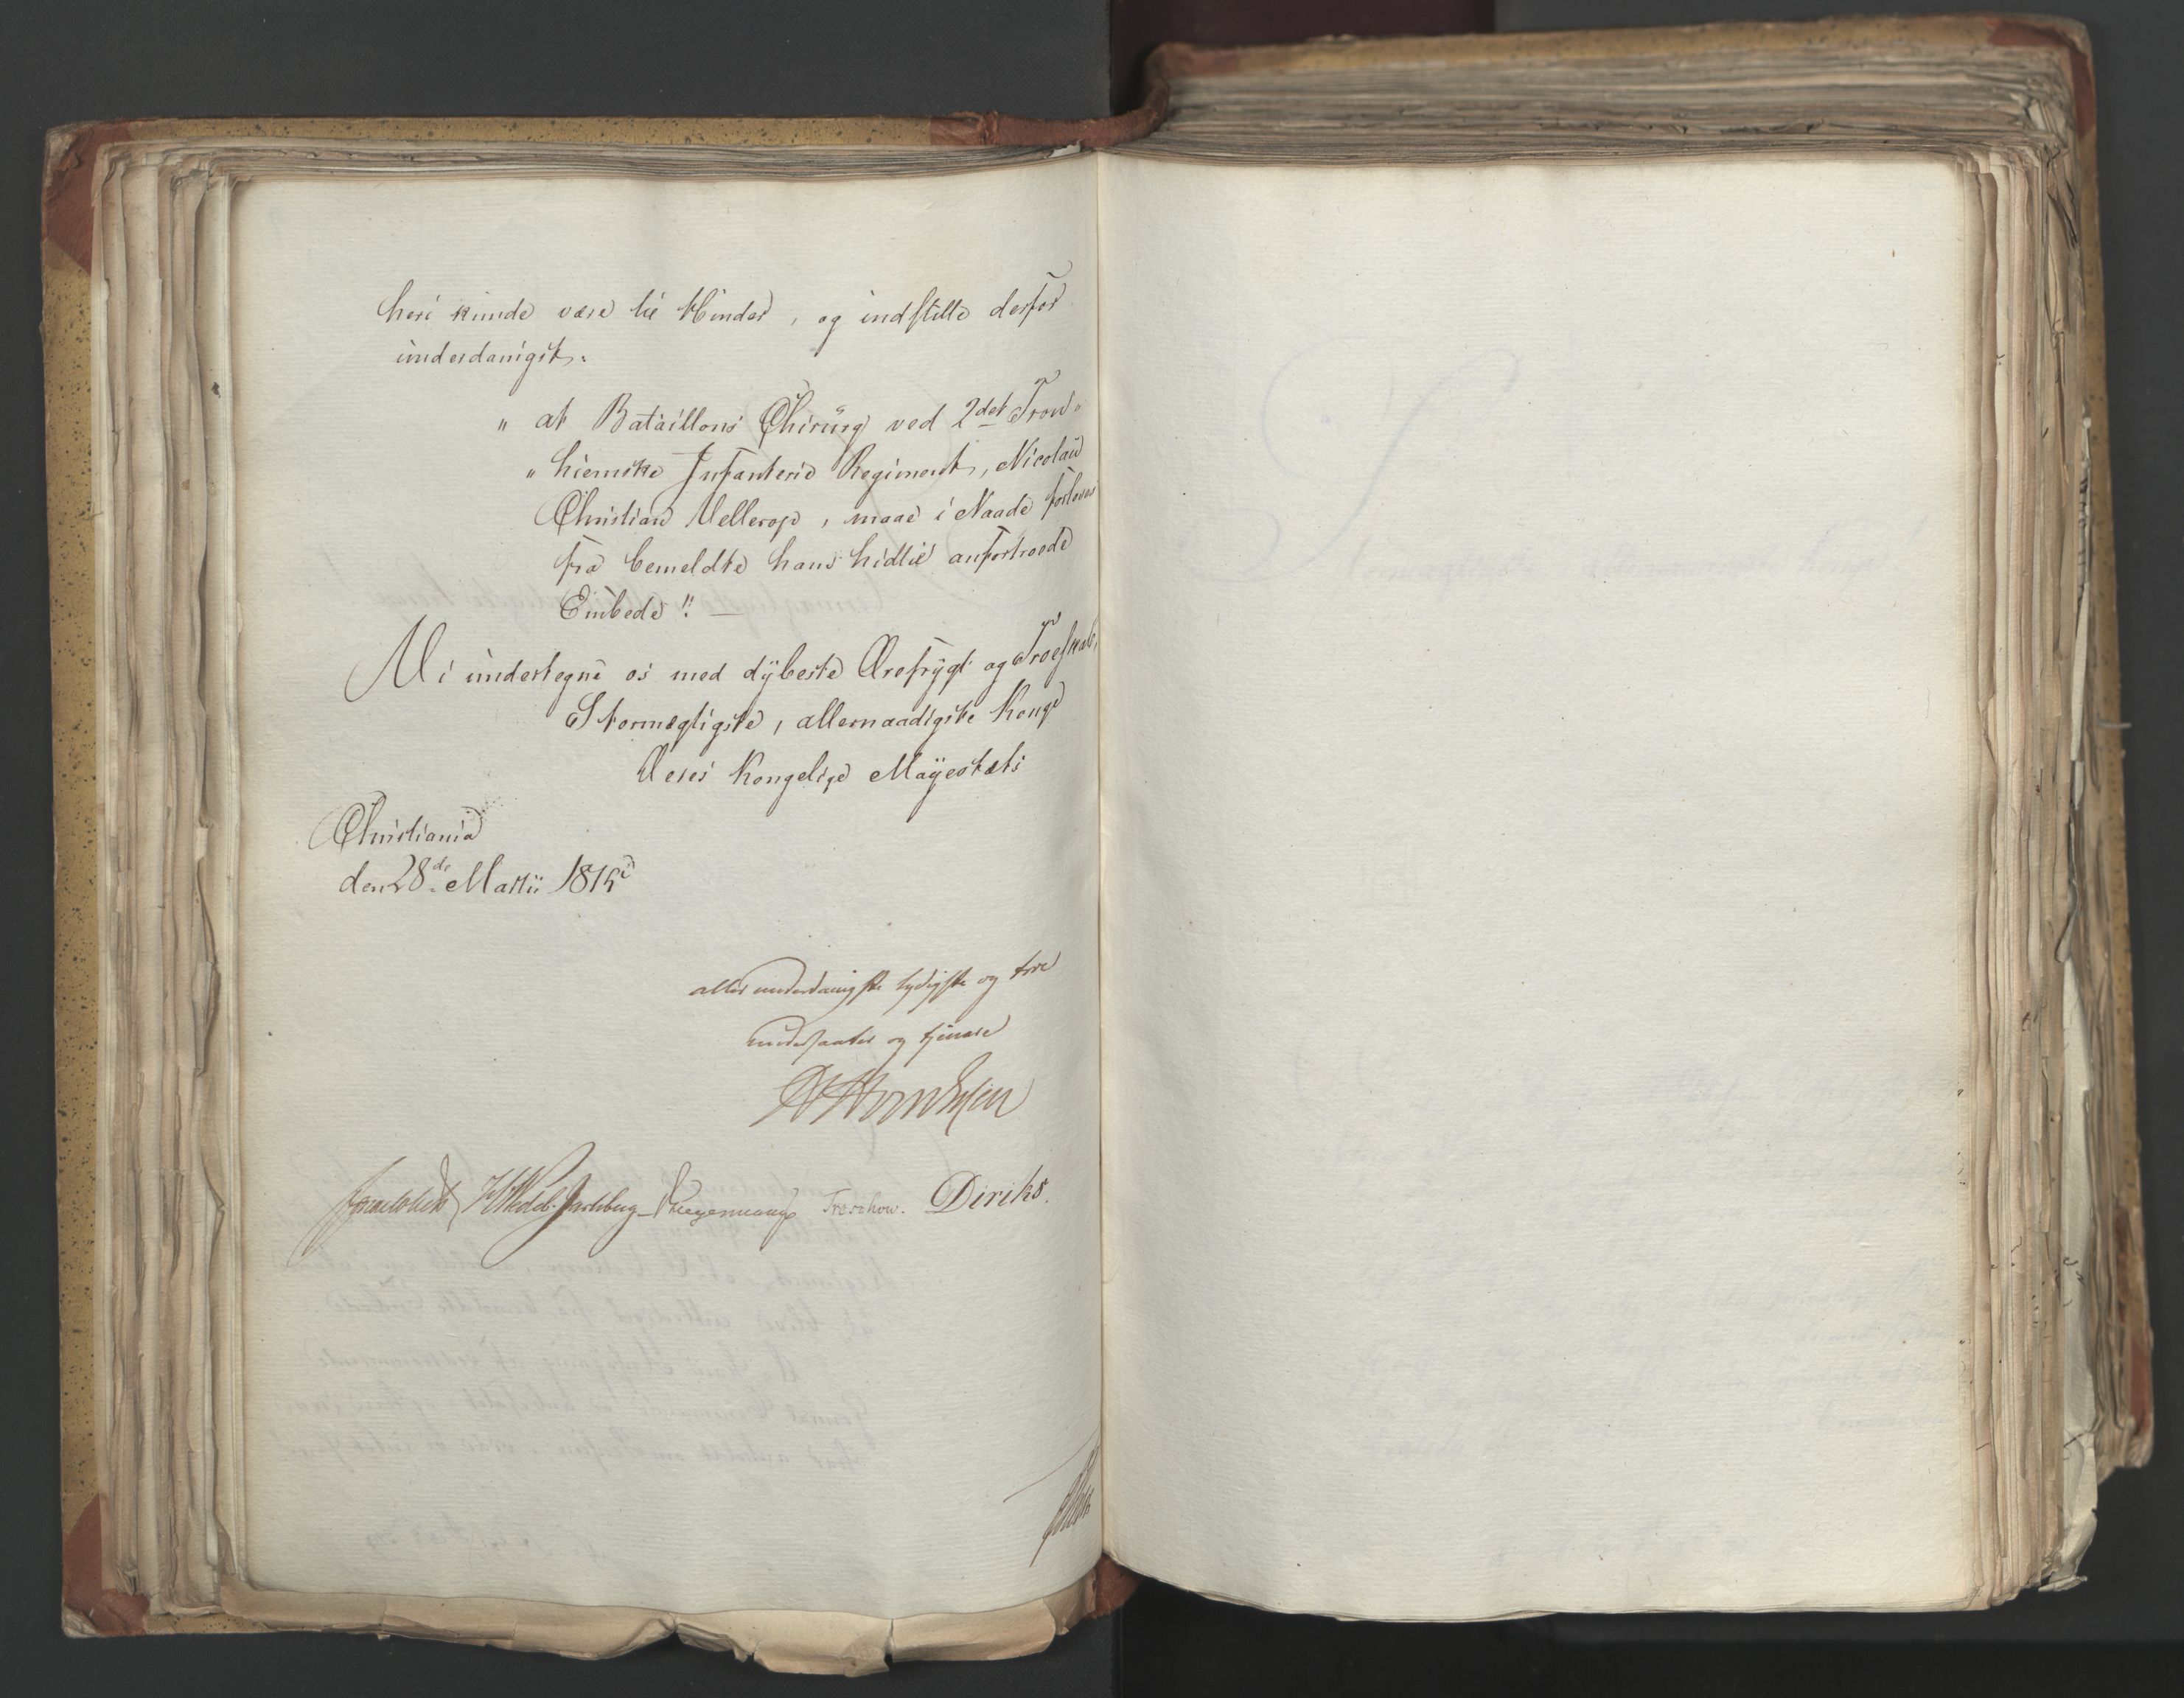 heri kunde være til Hinder, og indstille derfor
underdanigst:
" at Bataillons Chirurg ved 2det Tron-
" hiemske Infanterie Regiment, Nicolai
Christian Vellerop, maae i Naade forloves
fra bemeldte hans hidtil anfortroede
Embede". —
Vi undertegne os med dybeste Ærefrygt og Troeskab,
Stormægtigste, allernaadigste Konge
Deres Kongelige Mayestæts
Christiania
den 28de Martii 1815
allerunderdanigste lydigste og troe
undersaatter og tjenere
HWedel-Jarlsberg Krogermann Treschow. Diriks.